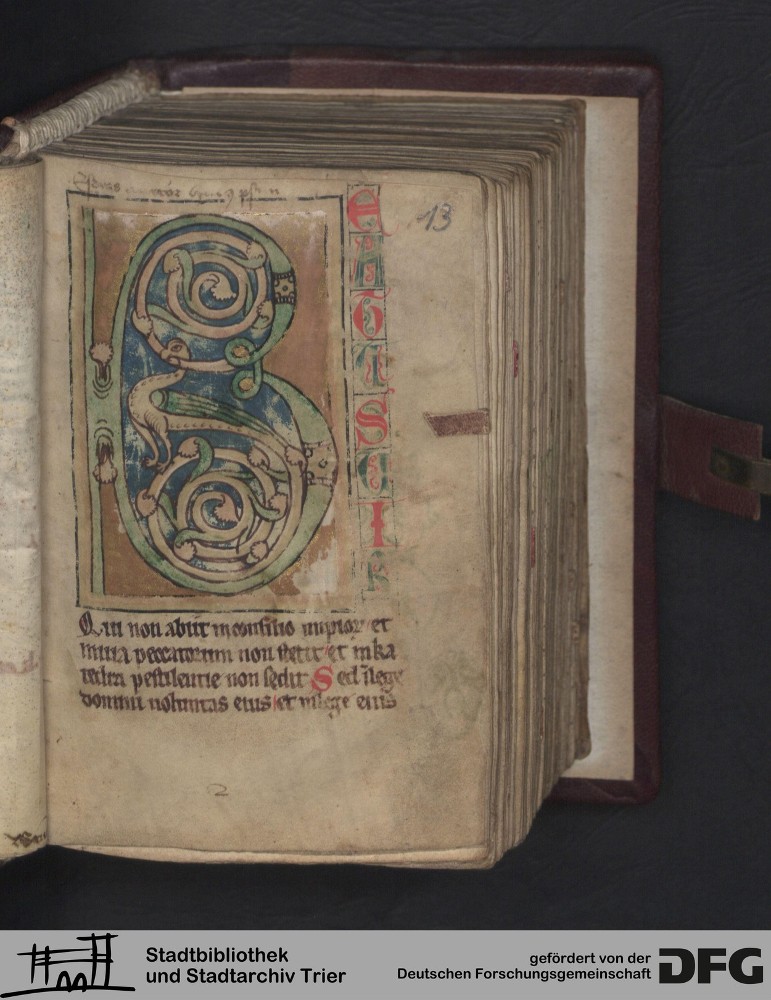 13
B
EATUS UIR
Qui non abiit in consilio impior et
in uia peccatorum non stetit et in ka
tedra pestilentie non sedit Sed i lege
domini uoluntas eius et in lege eius
2
Stadtbibliothek
und Stadtarchiv Trier
gefördert von der
Deutschen Forschungsgemeinschaft
DFG